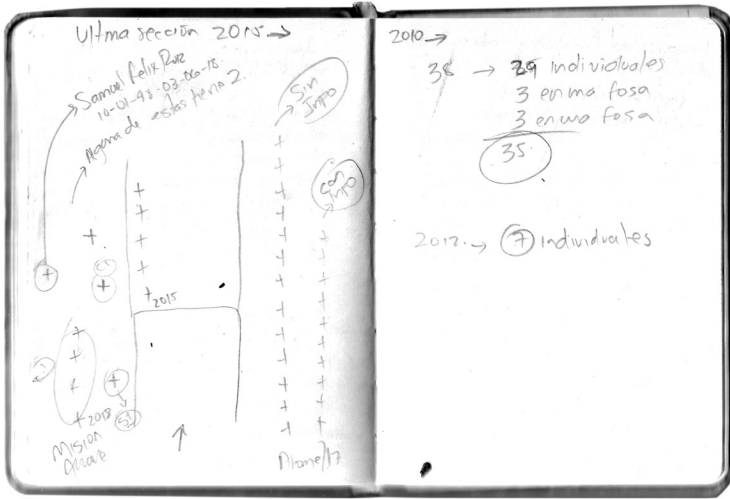 Ultma sección 2015 →
Samuel Felix Ruiz
10-01-98-03-06-18
Alguna de estas tiene 2.
Sin
Info
con
info
2015
2018
Mision
2010 →
38 → 29 individuales
3 en una fosa
3 en una fosa
35.
2012. → 7 individuales